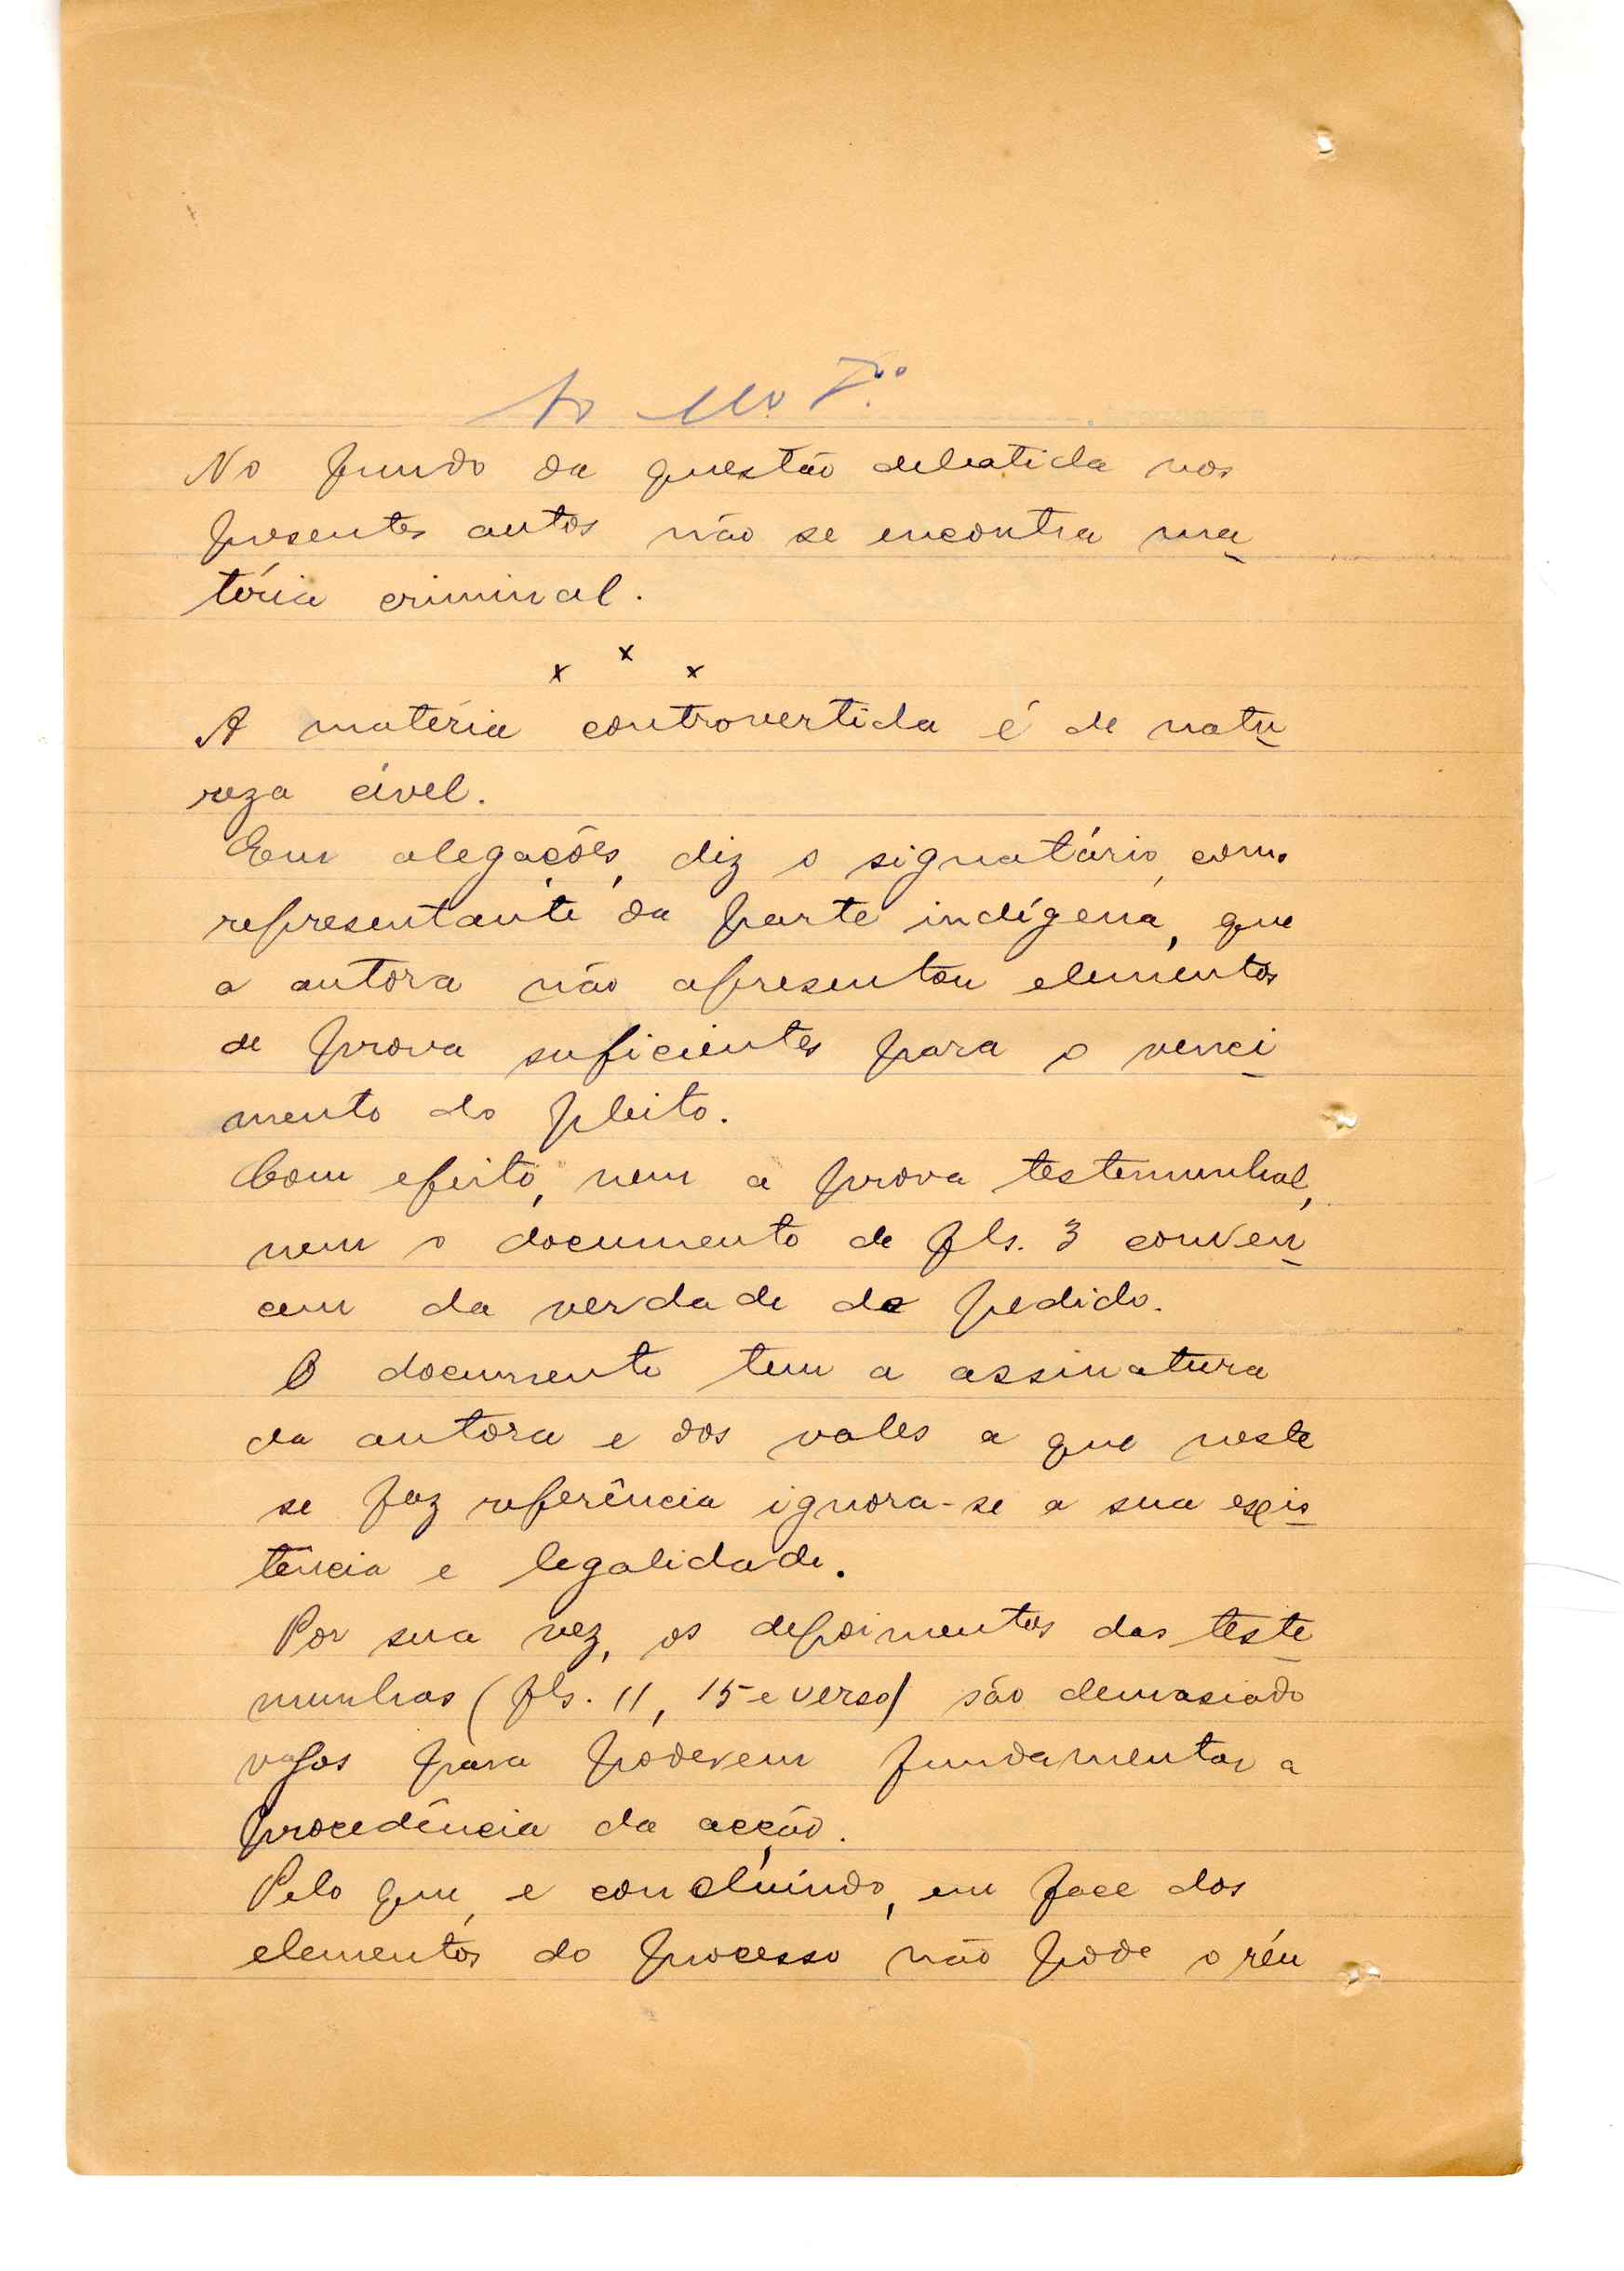 Ao Mo. Po.
No fundo da questão debatida nos
presentes autos não se encontra ma_
téria criminal.
x x x
A matéria controvertida é de natu_
reza cível.
Em alegações, diz o signatário, como
representante da parte indígena, que
a autora não apresentou elementos
de prova suficientes para o venci_
mento do pleito.
Com efeito, nem a prova testemunhal,
nem o documento de fls. 3 conven_
cem da verdade do pedido.
O documento tem a assinatura
da autora e dos vales a que neste
se faz referência ignora-se a sua exis_
tência e legalidade.
Por sua vez, os depoimentos das teste_
munhas (fls. 11, 15 e verso) são demasiado
vagos para poderem fundamentar a
procedência da acção.
Pelo que, e concluíndo, em face dos
elementos do processo não pode o réu